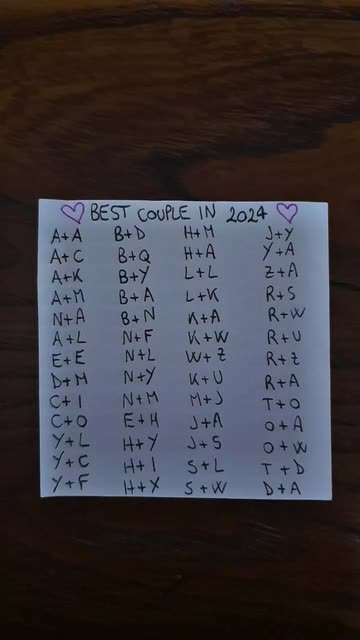 BEST COUPLE IN 2024
A+A B+D H+M J+Y
A+C B+Q H+A Y+A
A+K B+Y L+L Z+A
A+M B+A L+K R+S
N+A B+N K+A R+W
A+L N+F K+W R+U
E+E N+L W+Z R+Z
D+M N+Y K+U R+A
C+I N+M M+J T+O
C+O E+H J+A O+A
Y+L H+Y J+S O+W
Y+C H+I S+L T+D
Y+F H+X S+W D+A